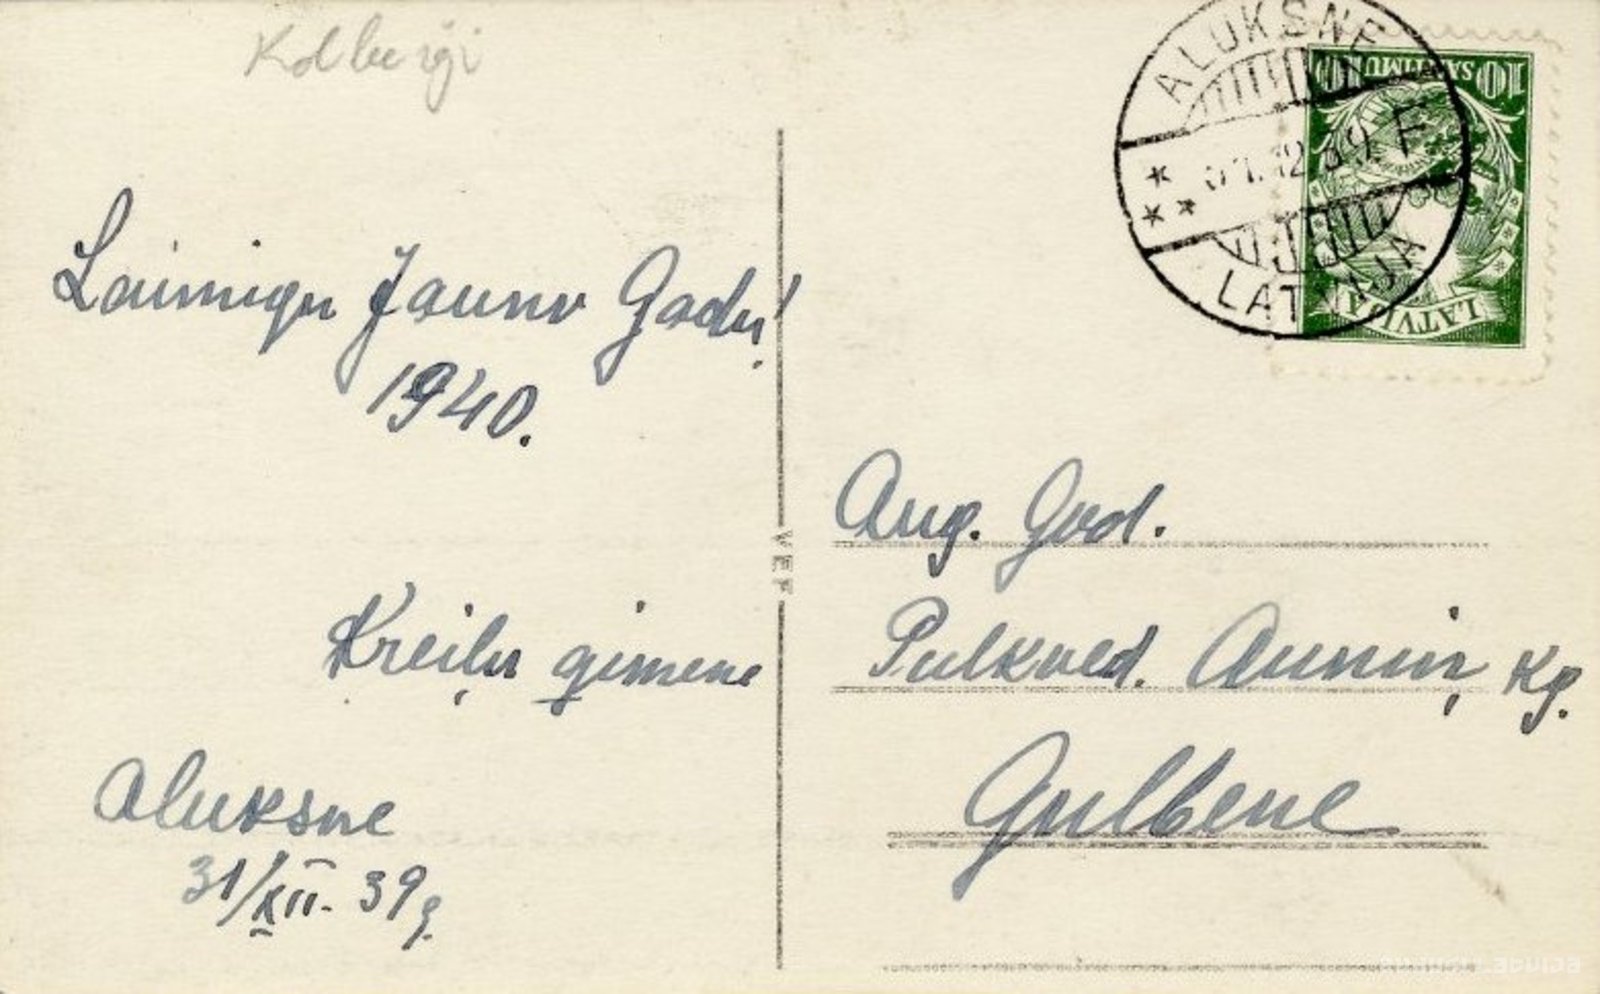 Kolberģi
Laimīgu Jauno Gadu!
1940.
Kreiļu ģimene
Aluksne
31/XII. 39 g.
VEF
ALUKSNE
31.12.39 F
LATVIJA
10 SANTIMU 10
LATVIJA
Aug. God.
Pulkved. Auniņ kg.
Gulbene
zudusi Latvija